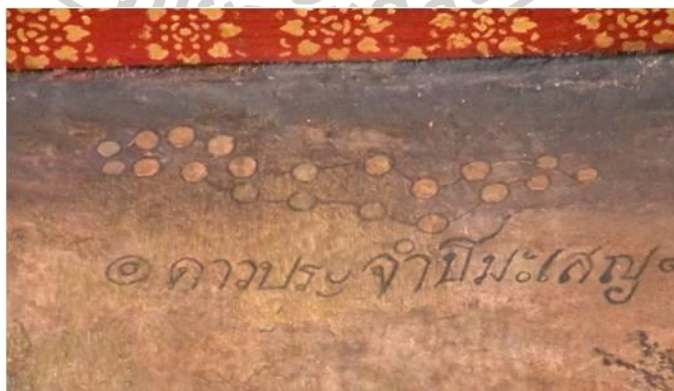 ๏ ดาวประจำปีมะเสญ ๏